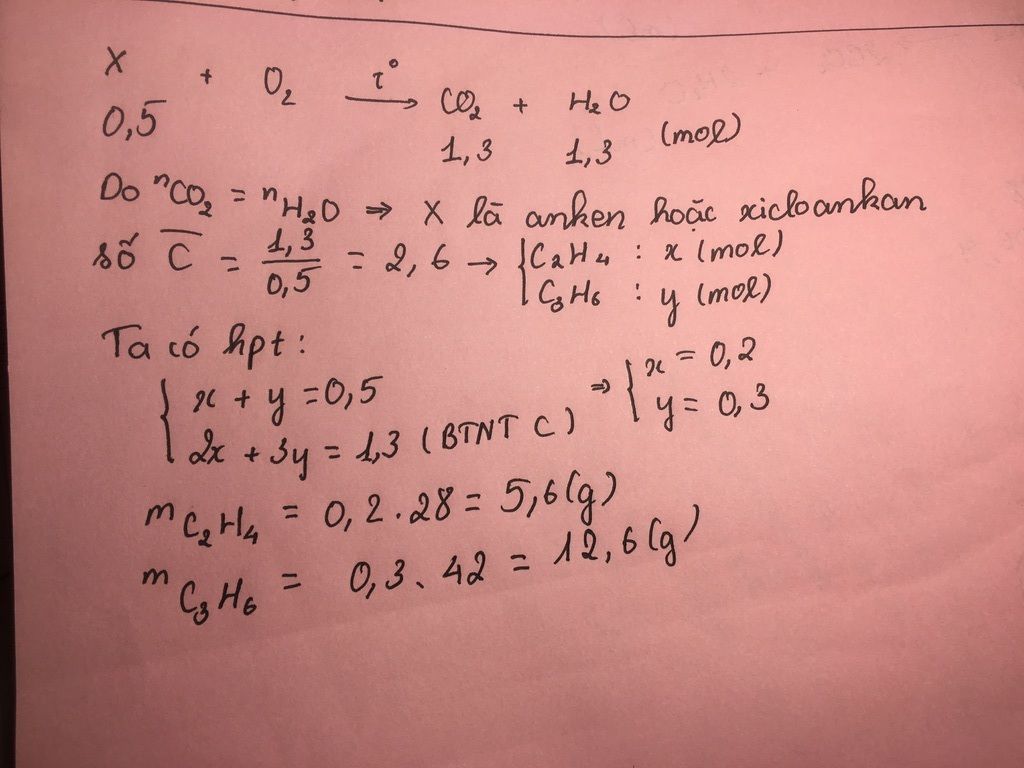 X + O₂ —t°→ CO₂ + H₂O
0,5 1,3 1,3 (mol)
Do nCO₂ = nH₂O ⇒ X là anken hoặc xicloankan
số C̅ = 1,3/0,5 = 2,6 → { C₂H₄ : x (mol)
C₃H₆ : y (mol)
Ta có hpt:
{ x + y = 0,5 ⇒ { x = 0,2
2x + 3y = 1,3 (BTNT C) y = 0,3
mC₂H₄ = 0,2 . 28 = 5,6 (g)
mC₃H₆ = 0,3 . 42 = 12,6 (g)